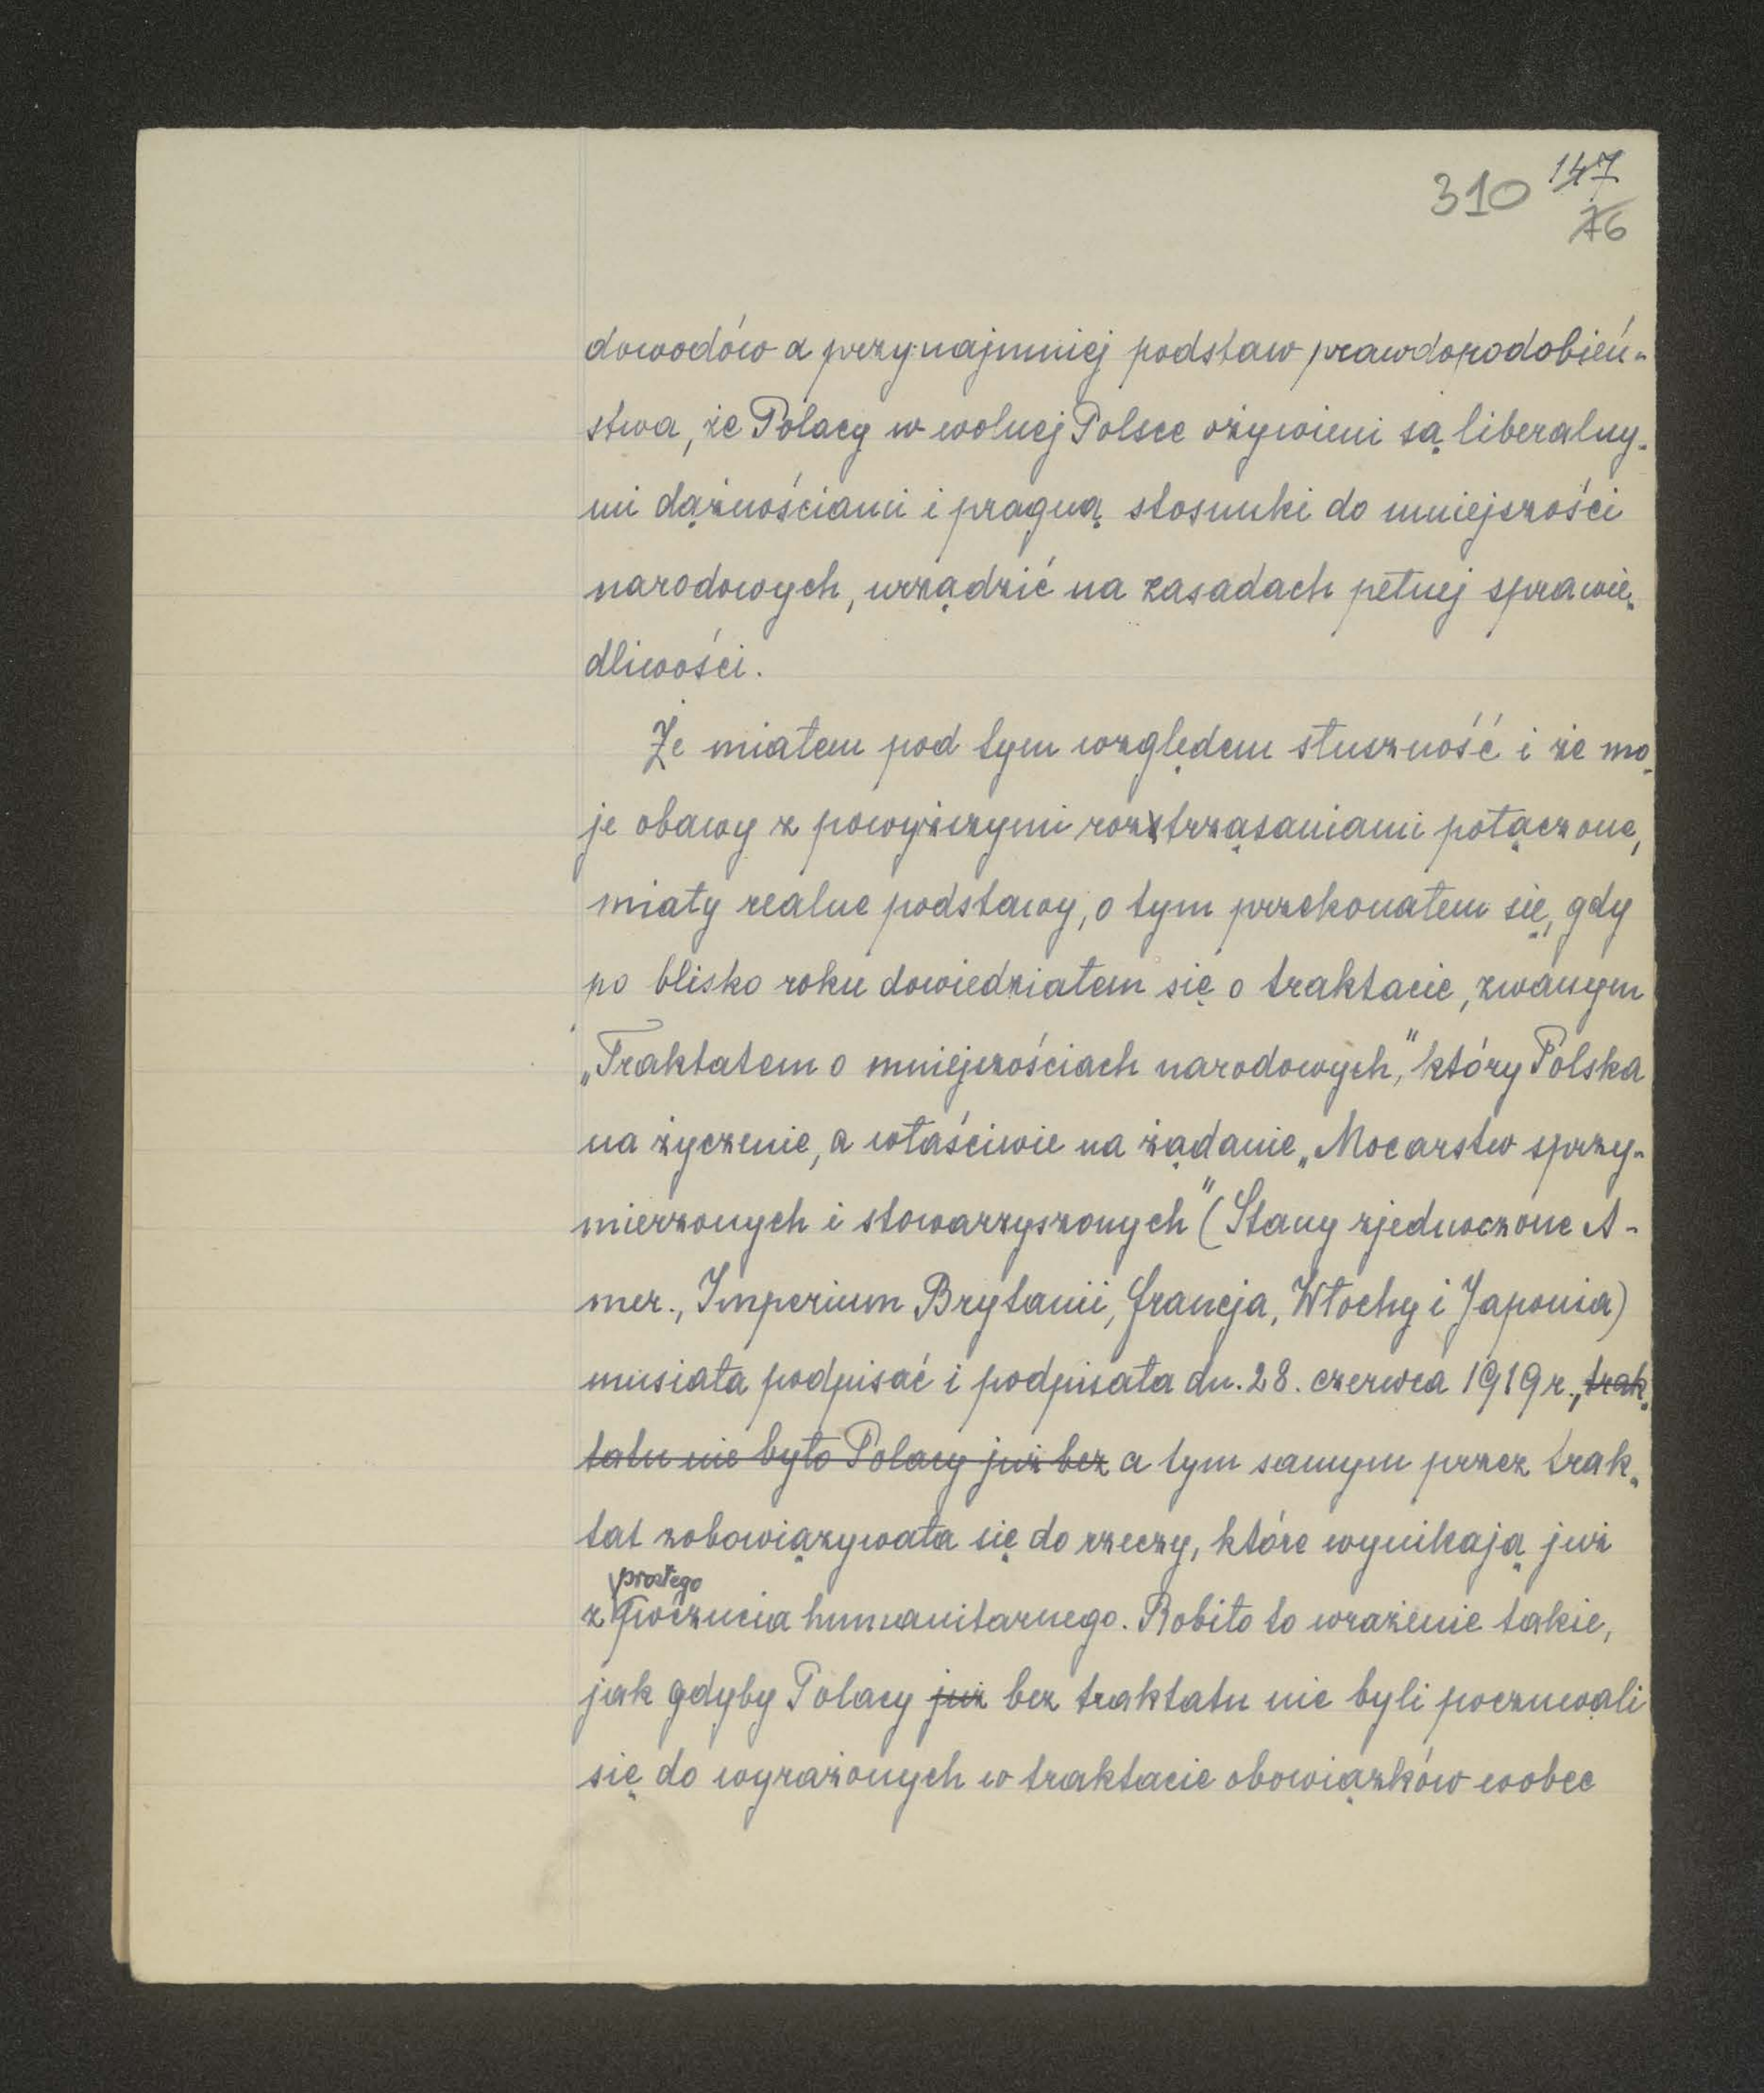 310 147
76
dowodów a przynajmniej podstaw prawdopodobień-
stwa, że Polacy w wolnej Polsce ożywieni są liberalny-
mi dążnościami i pragną stosunki do mniejszości
narodowych, urządzić na zasadach pełnej sprawie-
dliwości.
Że miałem pod tym względem słuszność i że mo-
je obawy z powyższymi roztrząsaniami połączone,
miały realne podstawy, o tym przekonałem się, gdy
po blisko roku dowiedziałem się o traktacie, zwanym
„Traktatem o mniejszościach narodowych," który Polska
na życzenie, a właściwie na żądanie „Mocarstw sprzy-
mierzonych i stowarzyszonych" (Stany zjednoczone A-
mer., Imperium Brytanii, Francja, Włochy i Japonia)
musiała podpisać i podpisała dn. 28. czerwca 1919 r., trak-
tatu nie było Polacy już bez a tym samym przez trak-
tat zobowiązywała się do rzeczy, które wynikają już
prostego
z poczucia humanitarnego. Robiło to wrażenie takie,
jak gdyby Polacy już bez traktatu nie byli poczuwali
się do wyrażonych w traktacie obowiązków wobec